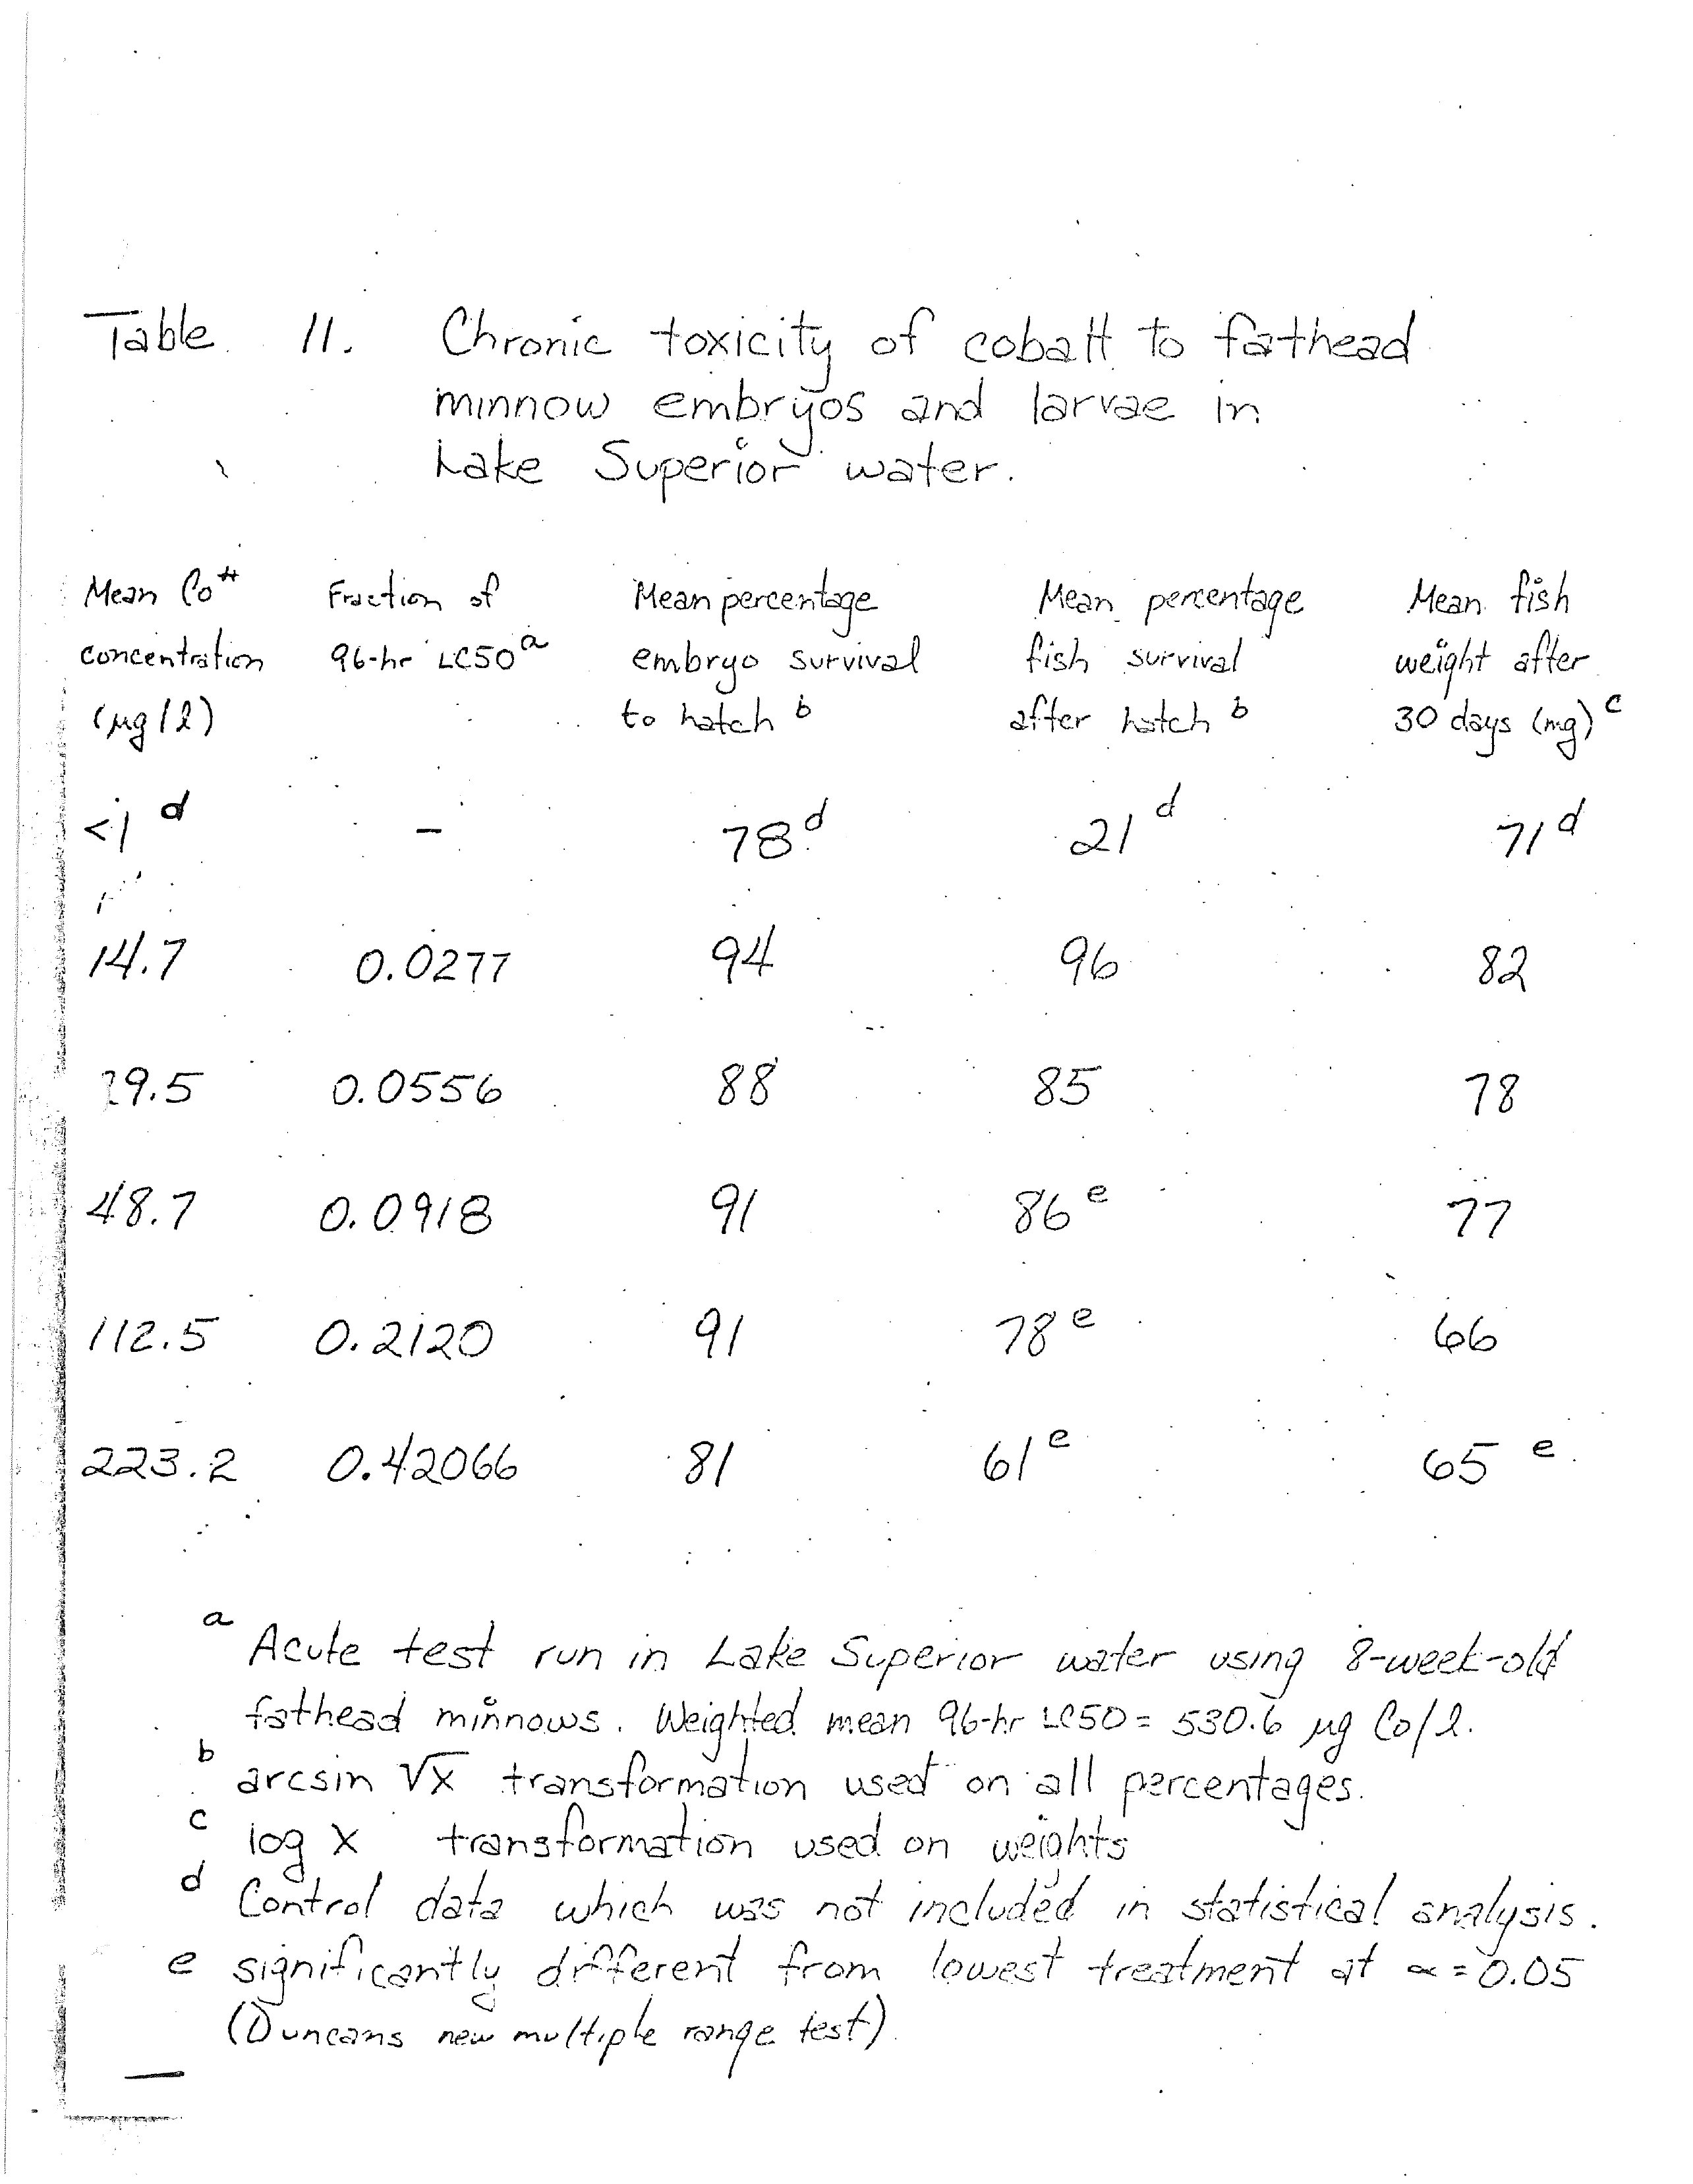 Table 11. Chronic toxicity of cobalt to fathead
minnow embryos and larvae in
Lake Superior water.
Mean Co++ Fraction of Mean percentage Mean percentage Mean fish
concentration 96-hr LC50 a embryo survival fish survival weight after
(µg/l) to hatch b after hatch b 30 days (mg) c
<1 d - 78 d 21 d 71 d
14.7 0.0277 94 96 82
29.5 0.0556 88 85 78
48.7 0.0918 91 86 e 77
112.5 0.2120 91 78 e 66
223.2 0.42066 81 61 e 65 e
a Acute test run in Lake Superior water using 8-week-old
fathead minnows. Weighted mean 96-hr LC50 = 530.6 µg Co/l.
b arcsin √x transformation used on all percentages.
c log x transformation used on weights
d Control data which was not included in statistical analysis.
e significantly different from lowest treatment at α = 0.05
(Duncans new multiple range test).